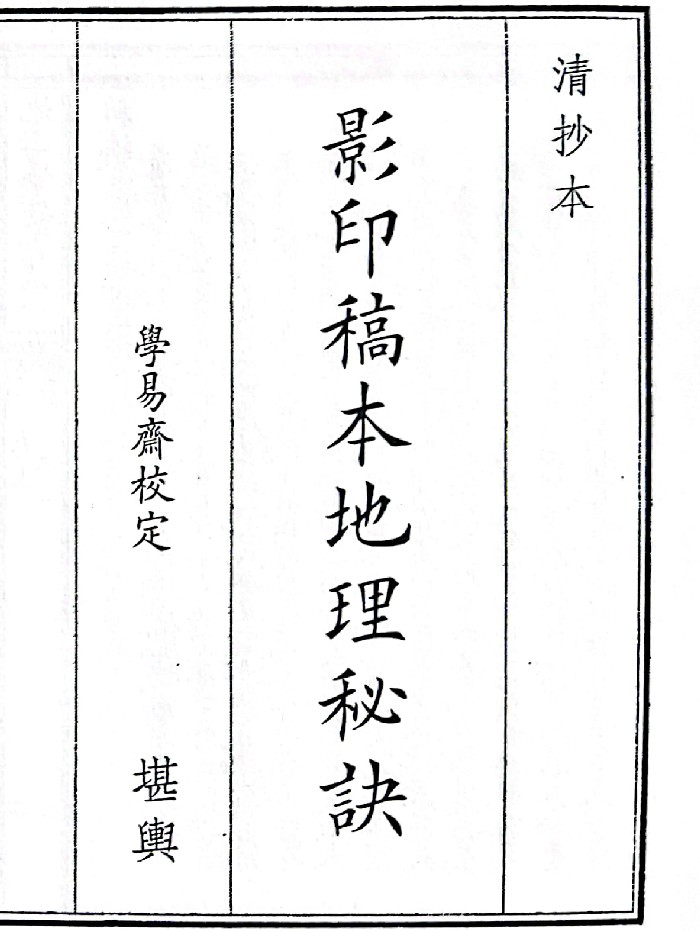 清抄本
影印稿本地理秘訣
學易齋校定
堪輿